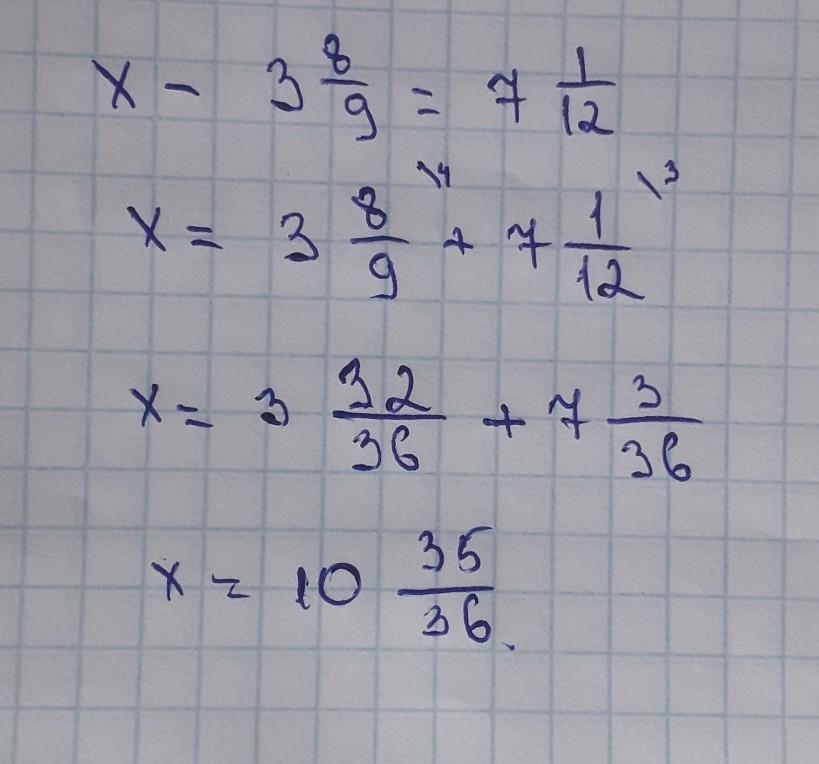 x - 3 8/9 = 7 1/12
x = 3 8/9 \4 + 7 1/12 \3
x = 3 32/36 + 7 3/36
x = 10 35/36.